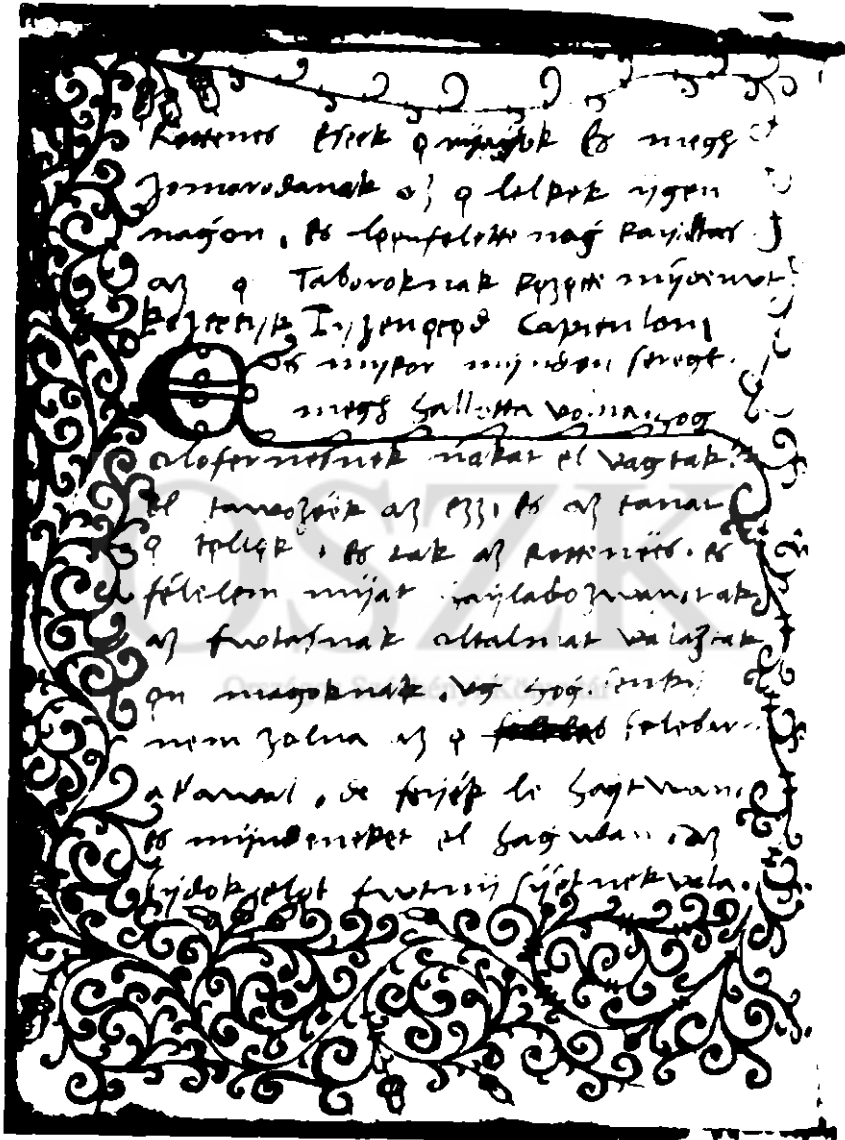 Rettenes eseek ę reijajok Es megh
Jomorodanak az ę lelkek ygen
nagon, Es leenfelette nag kayltas
az ę Taboroknak kęzęte mijdenvt
keztetijk Tyzenęteod Capitulom
Es mijkor mijnden sereget
megh hallotta volna hog
olofernesnek nakat el vagtak
el tawozeek az ezz, es az tanat
ę tęllęk, Es tak az rettenees. Es
félelem mijat haijladozwan
az fwtasnak oltalmat valaztak
ęn magoknak. vg hog senki
nem zolna az ę felebar
atawal, de feijęk le hajtwan
es mijndeneket el hagwan az
sydok elęt fwtnij sijetnek vala.
OSZK
Országos Széchényi Könyvtár